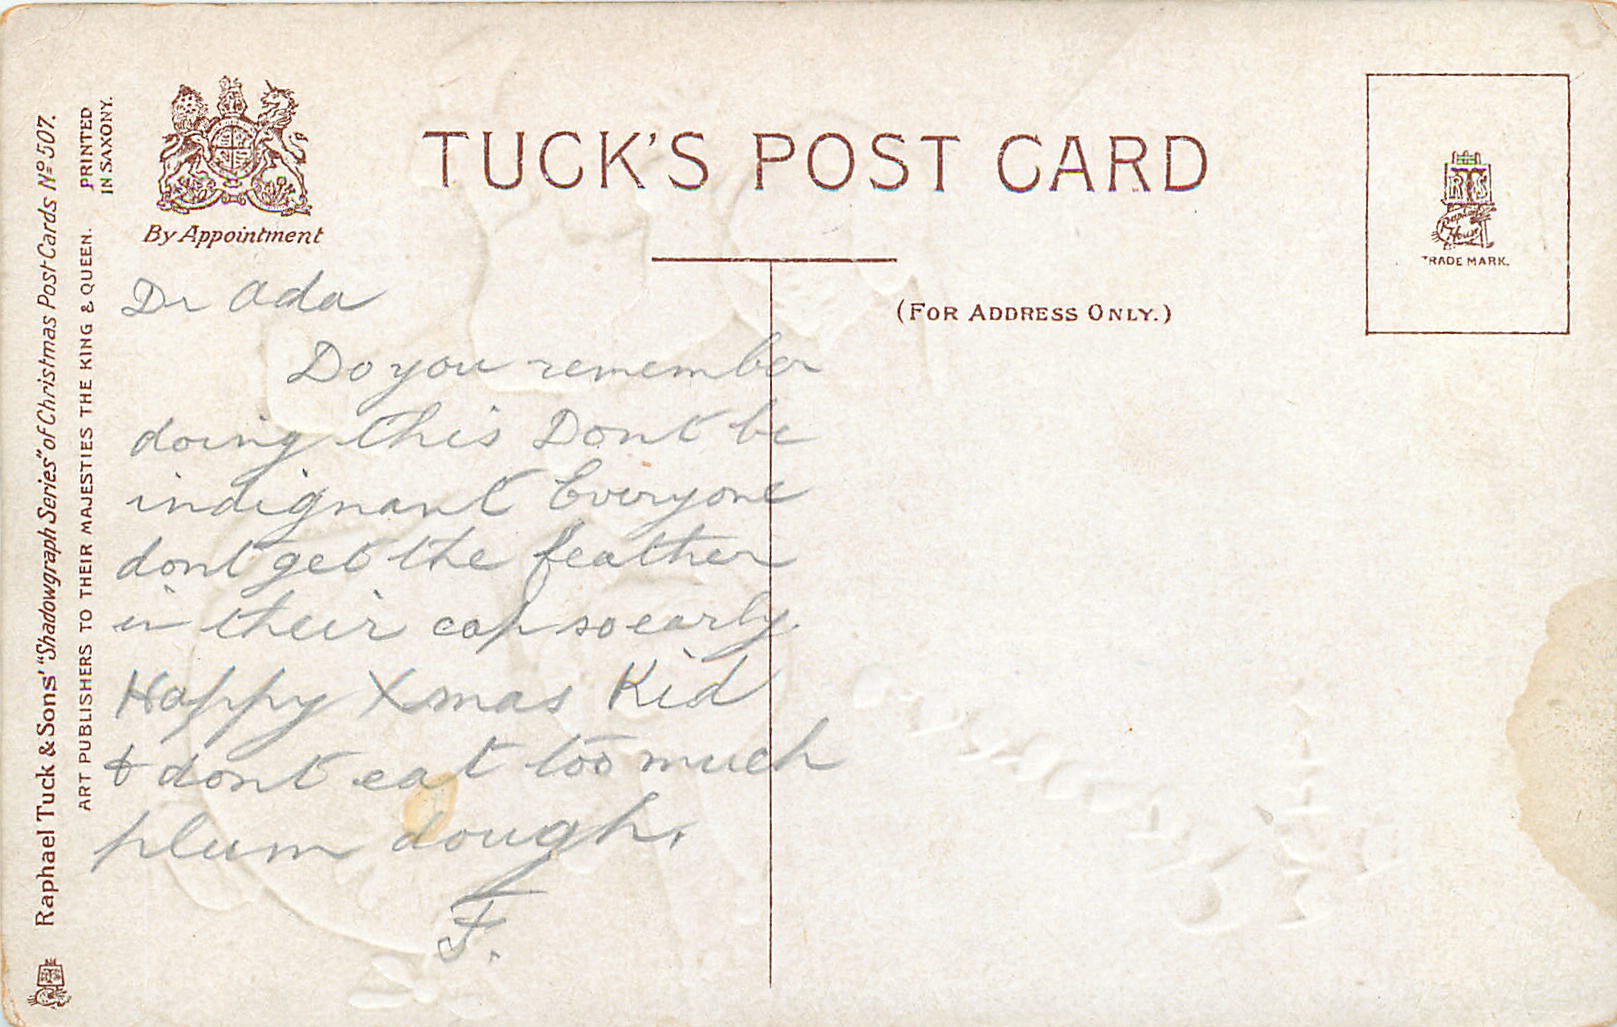 Raphael Tuck & Sons' "Shadowgraph Series" of Christmas Post Cards Nº 507.
ART PUBLISHERS TO THEIR MAJESTIES THE KING & QUEEN.
PRINTED
IN SAXONY.
By Appointment
TUCK'S POST CARD
(FOR ADDRESS ONLY.)
R T S
Raphael
House
TRADE MARK.
Dr Ada
Do you remember
doing this Dont be
indignant Everyone
dont get the feather
in their cap so early.
Happy Xmas Kid
& dont eat too much
plum dough.
F.